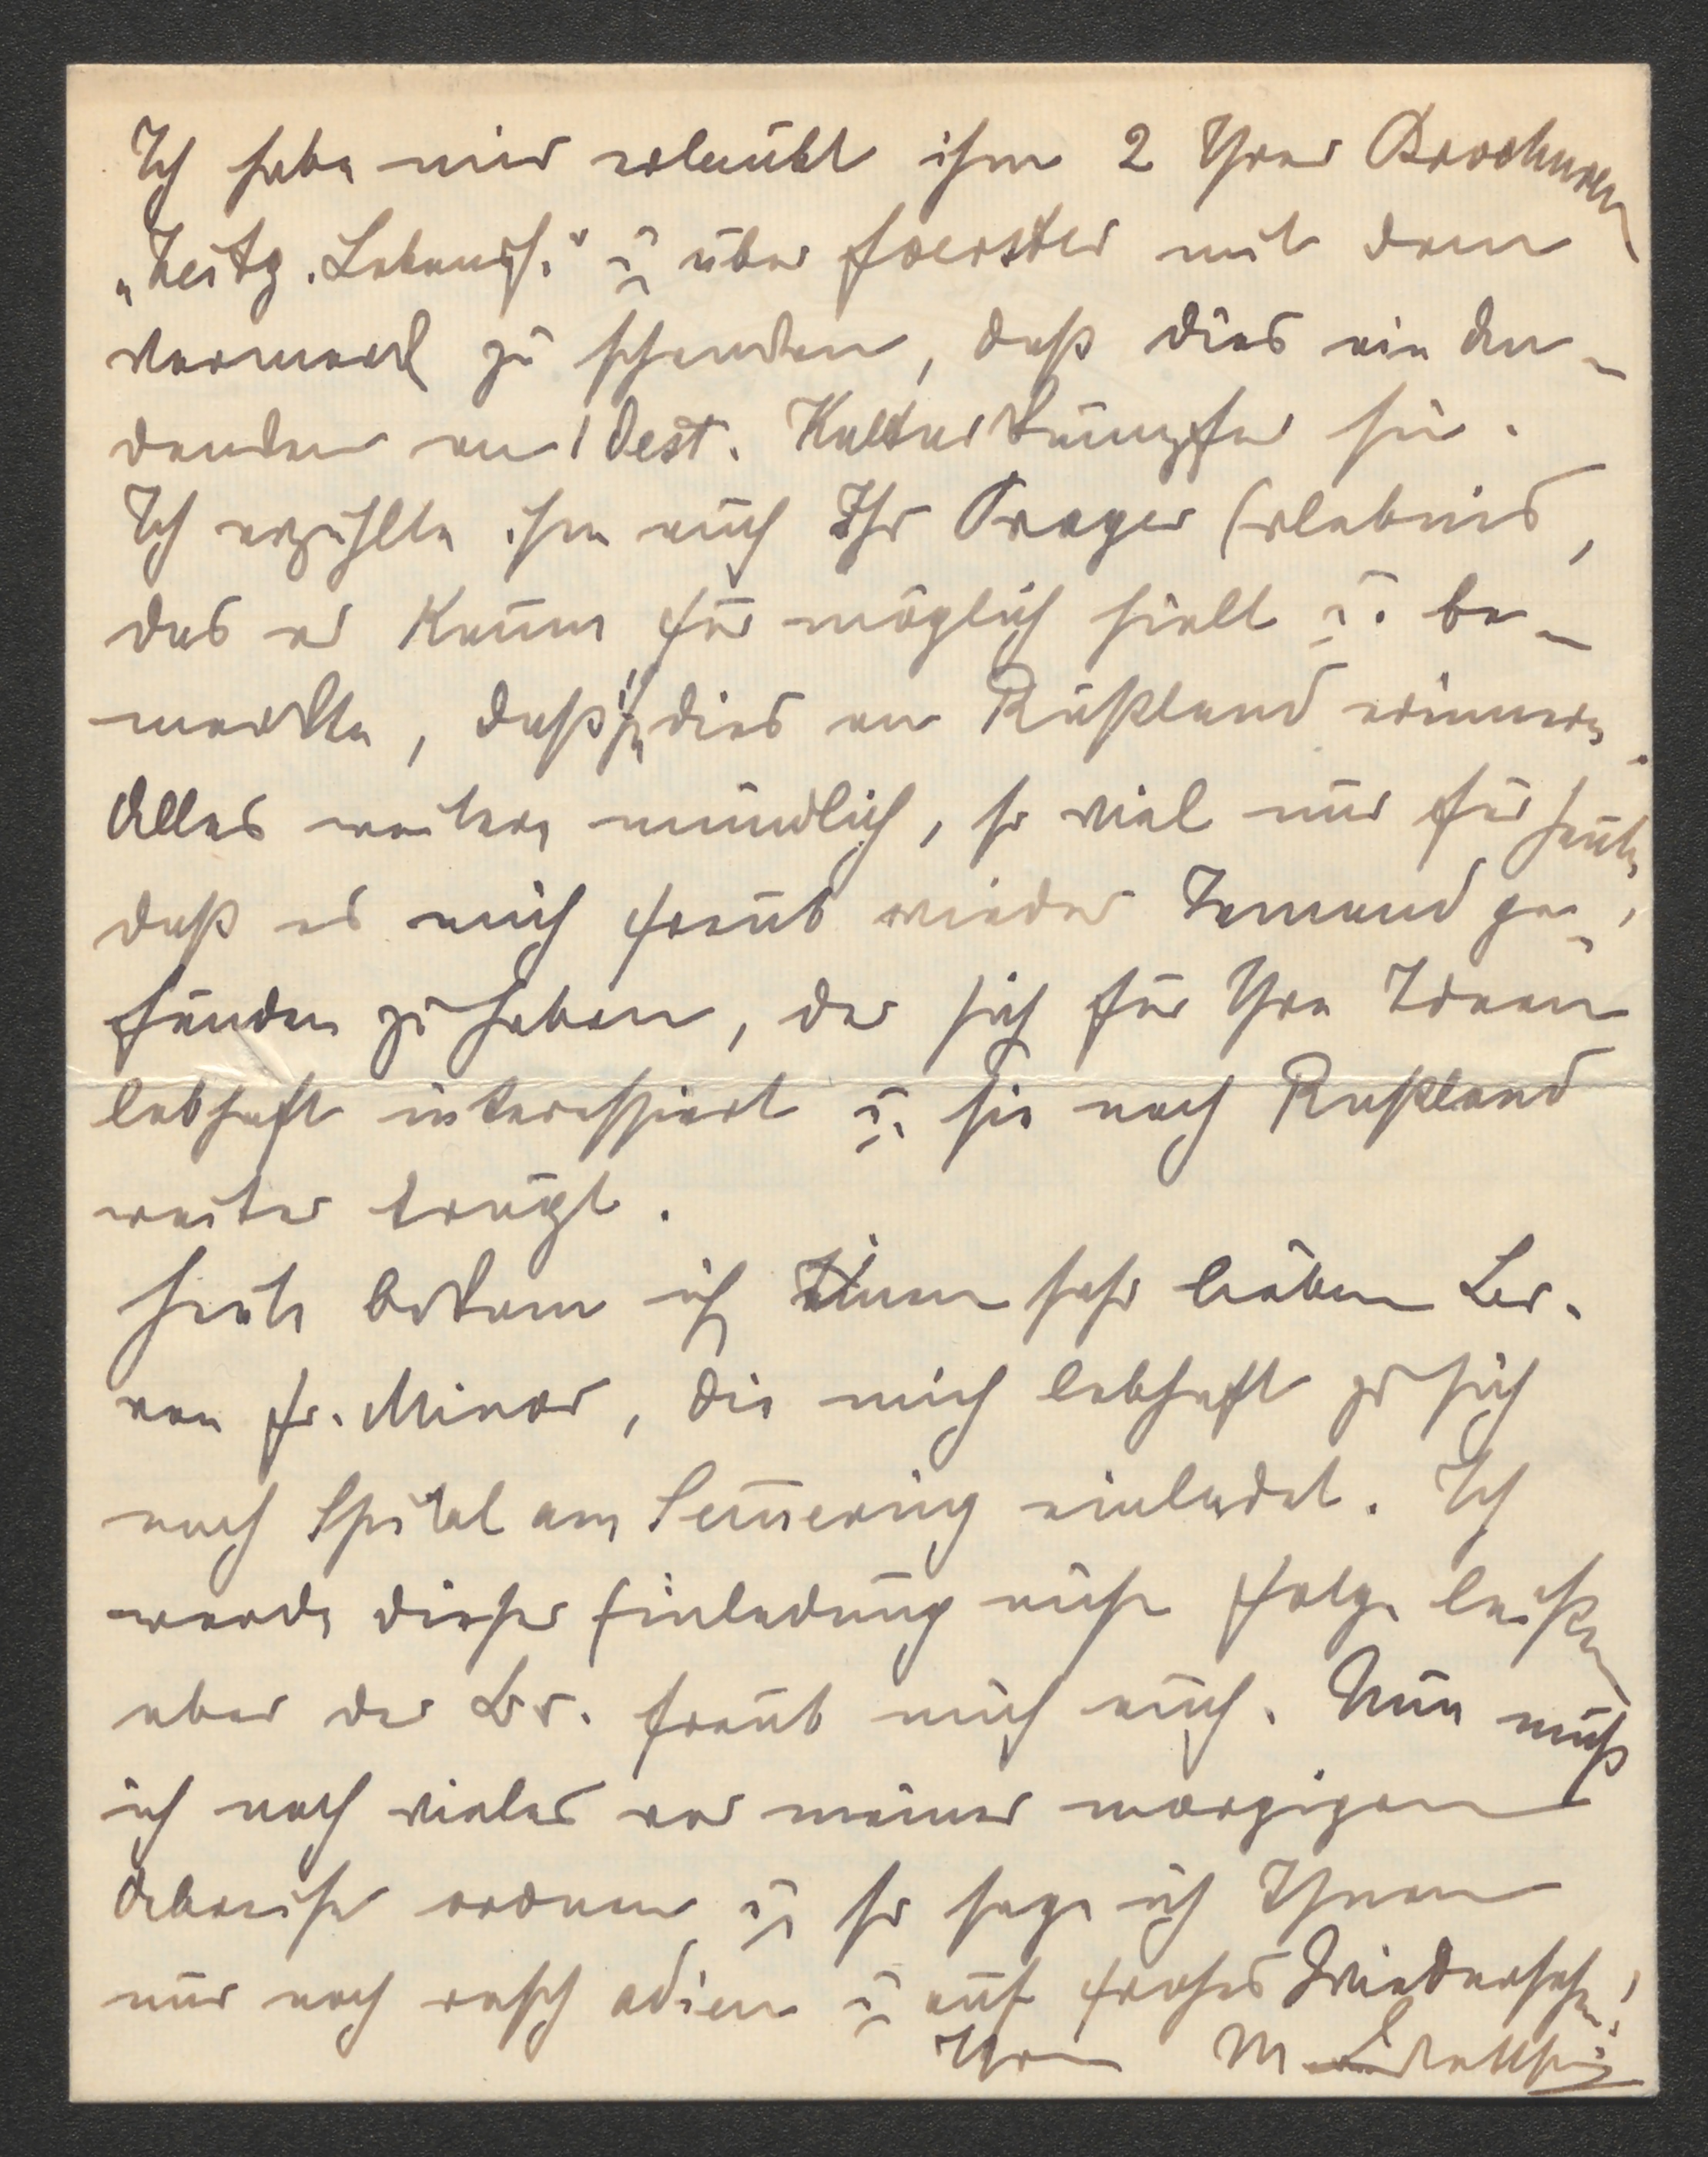 Ich habe mir erlaubt ihm 2 Ihrer Brochuren
„Zeitg. Lebensf.“ u über Foerster mit dem
Vermerk zu schenken, daß dies ein An-
denken an 1 Oest. Kulturkämpfer sei.
Ich erzählte ihm auch Ihr Prager Erlebnis,
das er kaum für möglich hielt u. be-
merkte, daß dies an Rußland erinnere.
Alles weitere mündlich, so viel nur für heute,
daß es mich freut wieder Jemand ge-
funden zu haben, der sich für Ihre Ideen
lebhaft interessiert u. sie nach Rußland
weiter trägt.
Heute bekam ich einen sehr lieben Br.
von Fr. Minor, die mich lebhaft zu sich
nach Spital am Semmering einladet. Ich
werde dieser Einladung nicht Folge leisten
aber der Br. freut mich auch. Nun muß
ich noch vieles vor meiner morgigen
Abreise ordnen u so sage ich Ihnen
nur noch rasch adieu u auf frohes Wiedersehen!
Ihre M